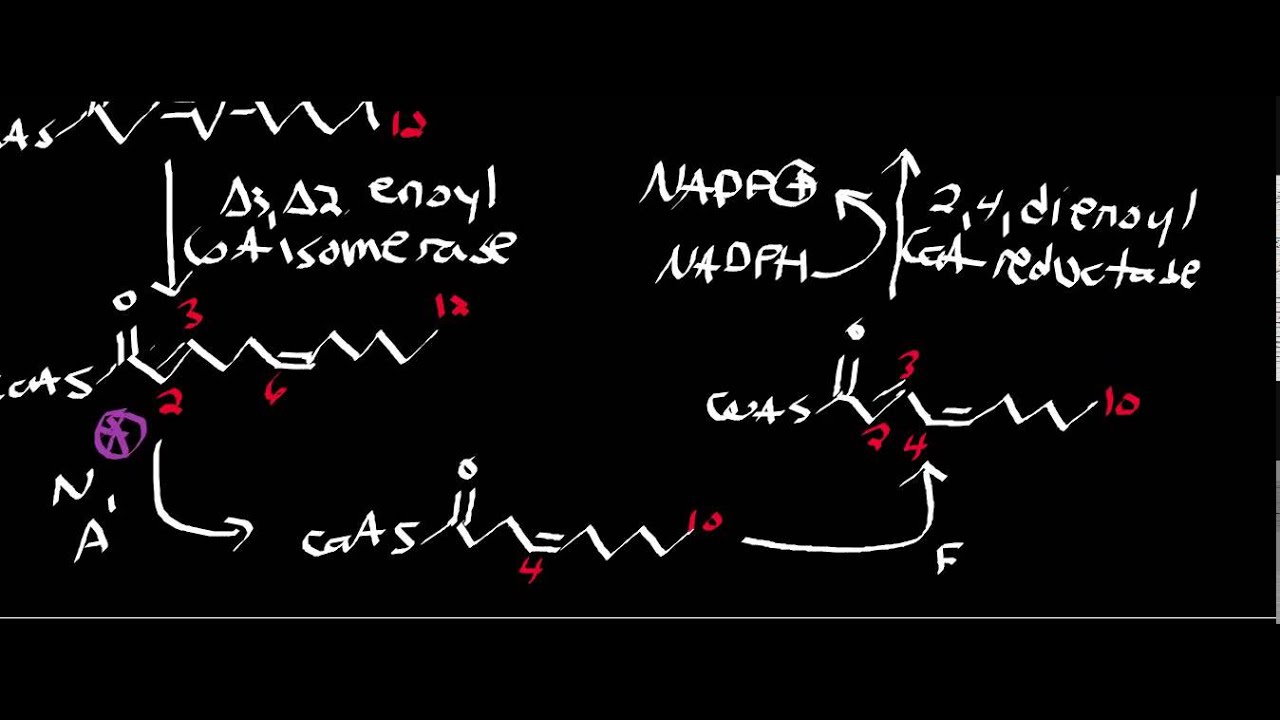 AS 12
Δ3,Δ2 enoyl
CoA isomerase
NADP⊕
NADPH
2,4, dienoyl
CoA reductase
O
3
12
CoAS
2
6
N,
A
O
CoAS
10
4
O
3
CoAS
10
2
4
F